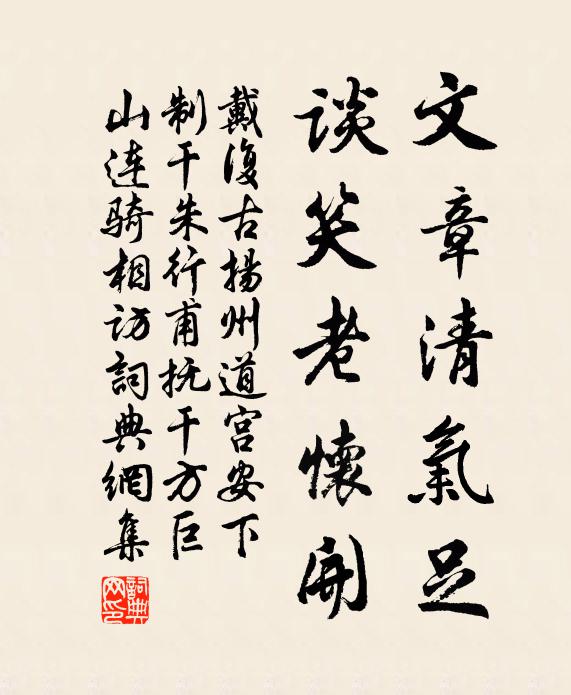 文章清氣足
談笑老懷開
戴復古揚州道宫安下
制干朱行甫抚干方巨
山連騎相访詞典網集
詞典
网印